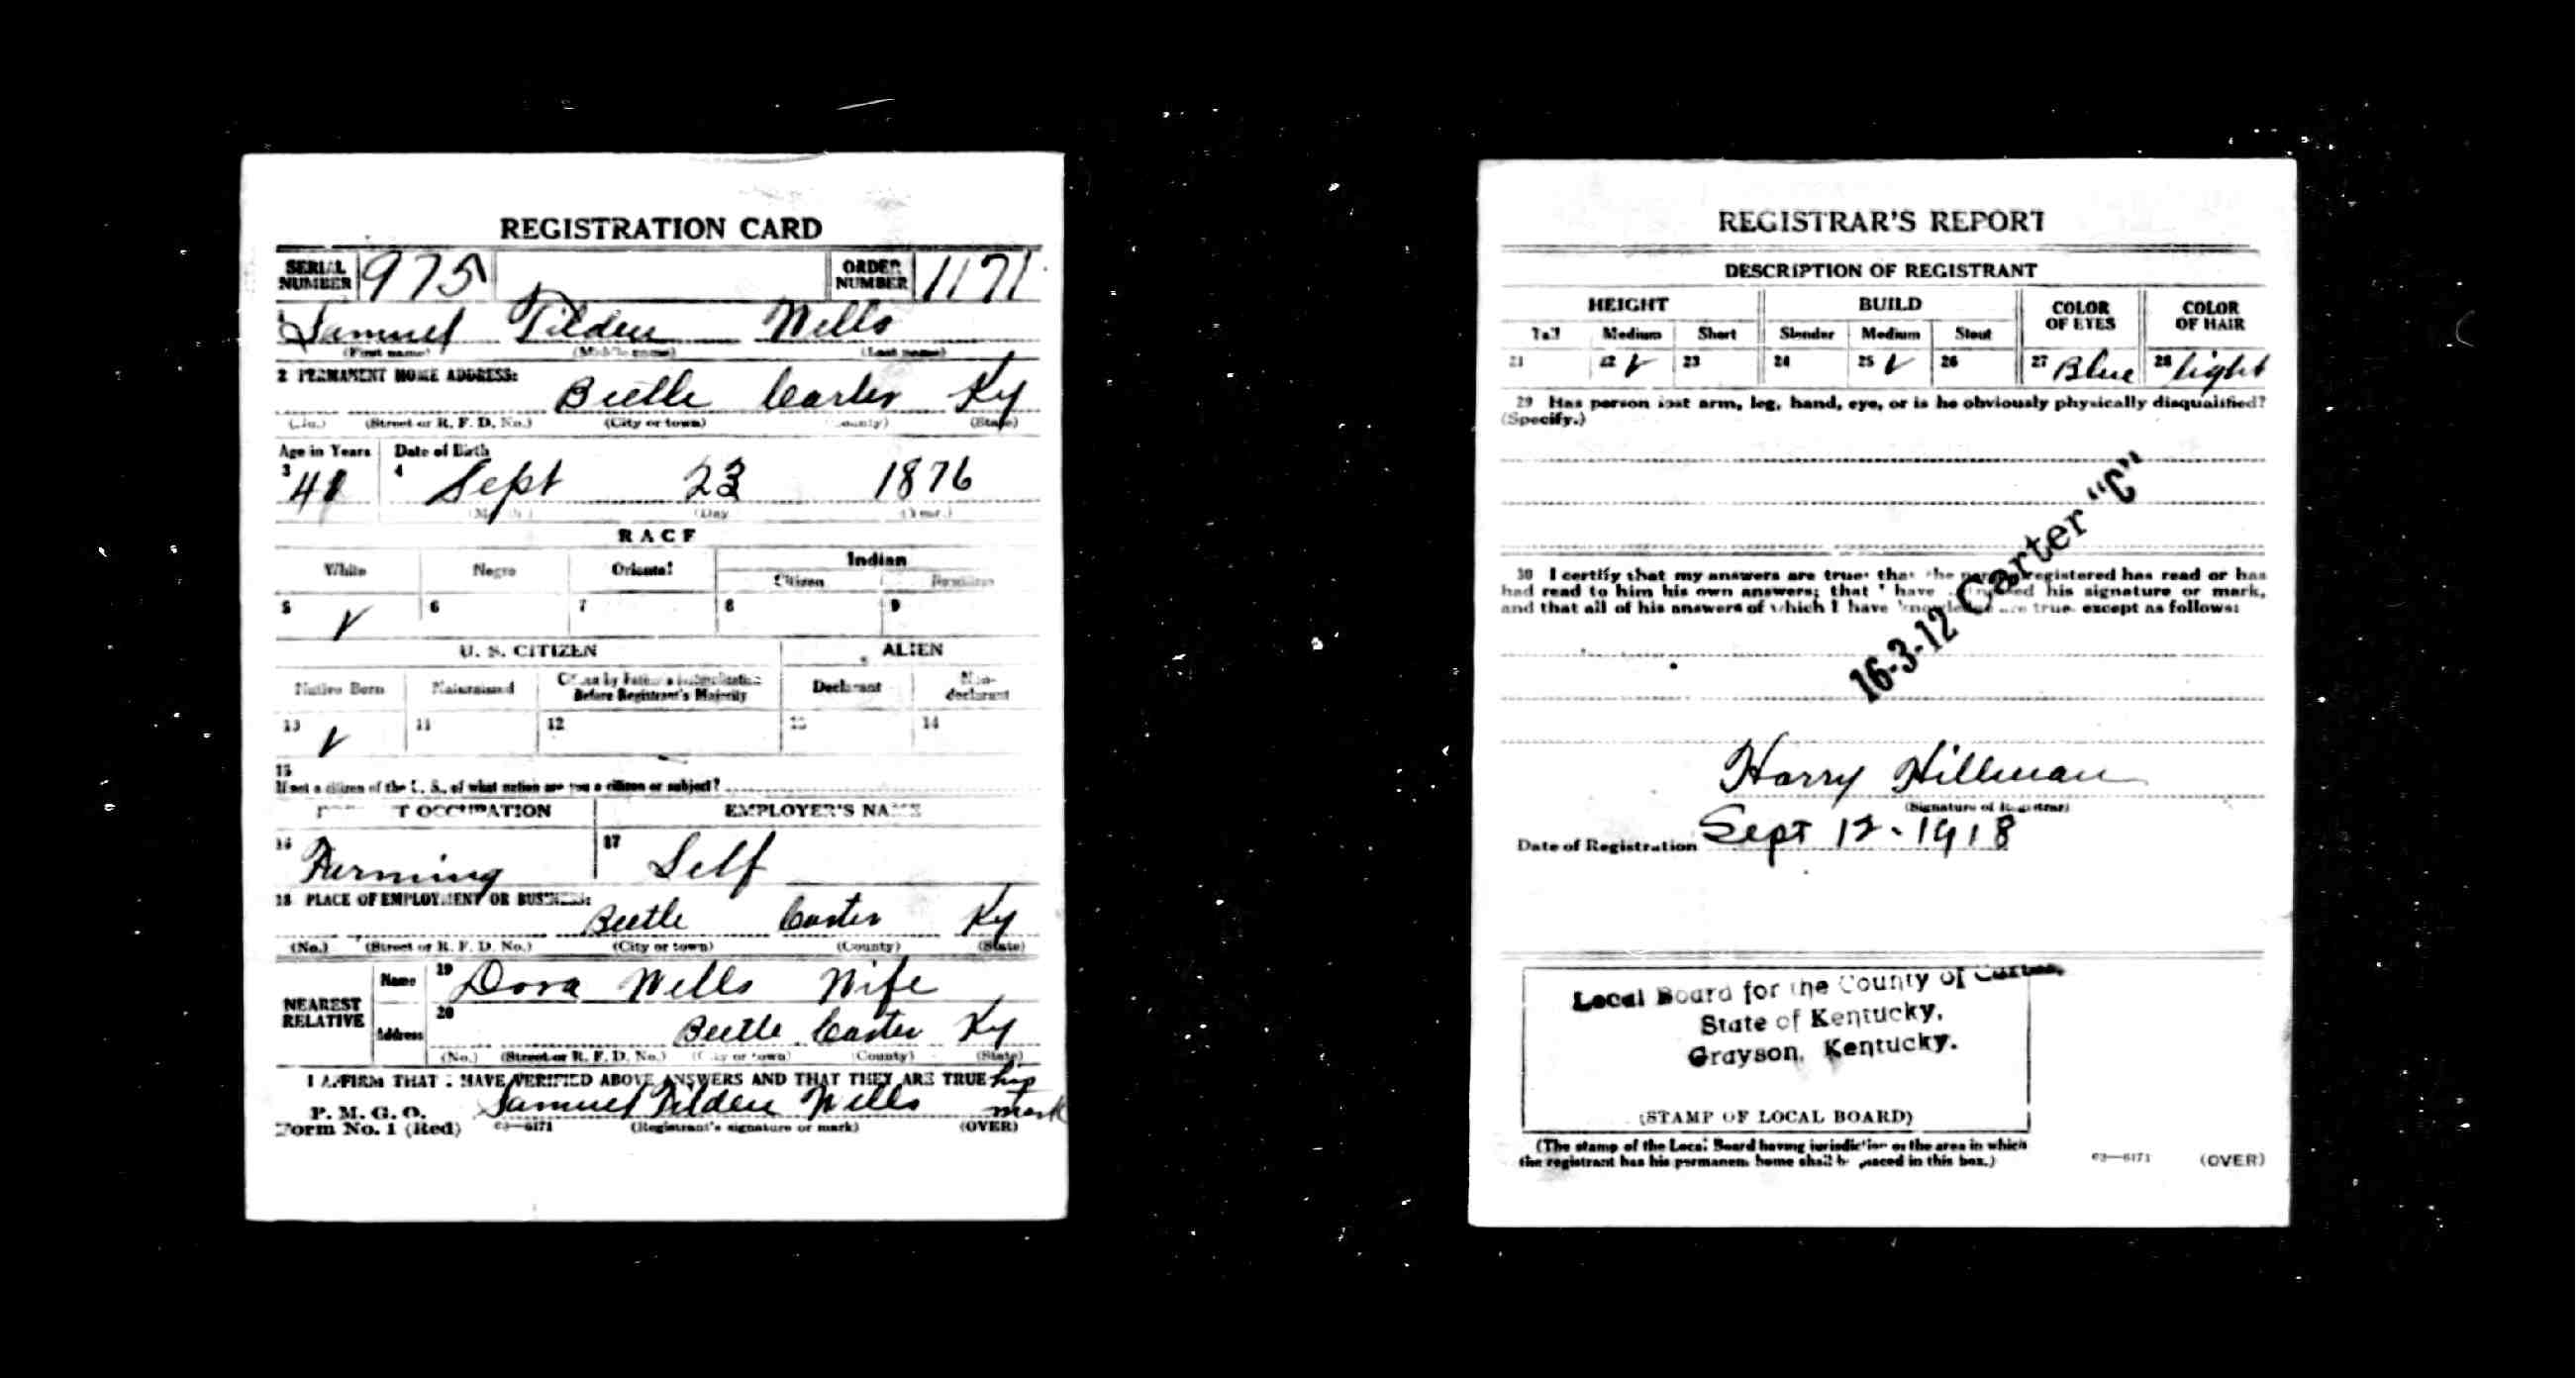 REGISTRATION CARD
SERIAL NUMBER 975 ORDER NUMBER 1171
1 Samuel Tilden Wells
(First name) (Middle name) (Last name)
2 PERMANENT HOME ADDRESS:
Beetle Carter Ky
(No.) (Street or R. F. D. No.) (City or town) (County) (State)
Age in Years Date of Birth
3 41 4 Sept 23 1876
(Month) (Day (Year.)
RACE
White Negro Oriental Indian
Citizen
5 V 6 7 8 9
U. S. CITIZEN ALIEN
Native Born Naturalized Citizen by Father's Naturalization Before Registrant's Majority Declarant Non-declarant
10 V 11 12 13 14
15
If not a citizen of the U. S., of what nation are you a citizen or subject?
PRESENT OCCUPATION EMPLOYER'S NAME
16 Farming 17 Self
18 PLACE OF EMPLOYMENT OR BUSINESS:
Beetle Carter Ky
(No.) (Street or R. F. D. No.) (City or town) (County) (State)
NEAREST RELATIVE Name 19 Dora Wells Wife
Address 20 Beetle Carter Ky
(No.) (Street or R. F. D. No.) (City or town) (County) (State)
I AFFIRM THAT I HAVE VERIFIED ABOVE ANSWERS AND THAT THEY ARE TRUE his
P. M. G. O. Samuel Tilden Wells mark
Form No. 1 (Red) 03—6171 (Registrant's signature or mark) (OVER)
REGISTRAR'S REPORT
DESCRIPTION OF REGISTRANT
HEIGHT BUILD COLOR OF EYES COLOR OF HAIR
Tall Medium Short Slender Medium Stout
21 22 V 23 24 25 V 26 27 Blue 28 light
29 Has person lost arm, leg, hand, eye, or is he obviously physically disqualified?
(Specify.)
30 I certify that my answers are true; that the person registered has read or has
had read to him his own answers; that I have witnessed his signature or mark,
and that all of his answers of which I have knowledge are true, except as follows:
16-3-12 Carter "C"
Harry Hillman
(Signature of Registrar)
Date of Registration Sept 12 - 1918
Local Board for the County of Carter,
State of Kentucky,
Grayson, Kentucky.
(STAMP OF LOCAL BOARD)
(The stamp of the Local Board having jurisdiction of the area in which
the registrant has his permanent home shall be placed in this box.)
03—6171 (OVER)